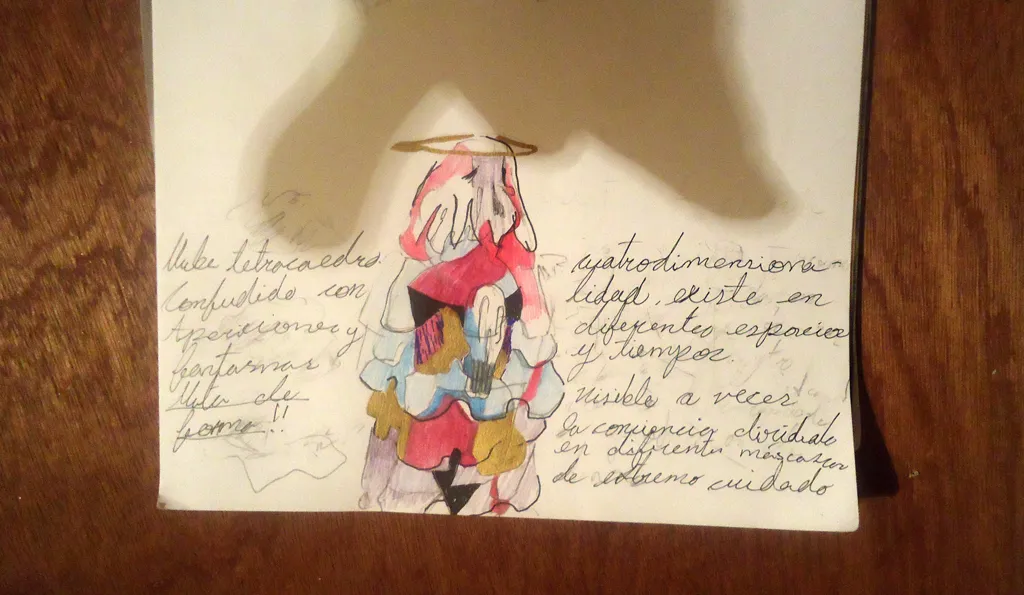 tetrocaedro
Confudido con
y
fantasmas
Muta de
forma!!
cuatrodimensiona-
lidad, existe en
diferentes espacios
y tiempos.
visible a veces
la conciencia dividida
en diferentes máscaras
de extremo cuidado